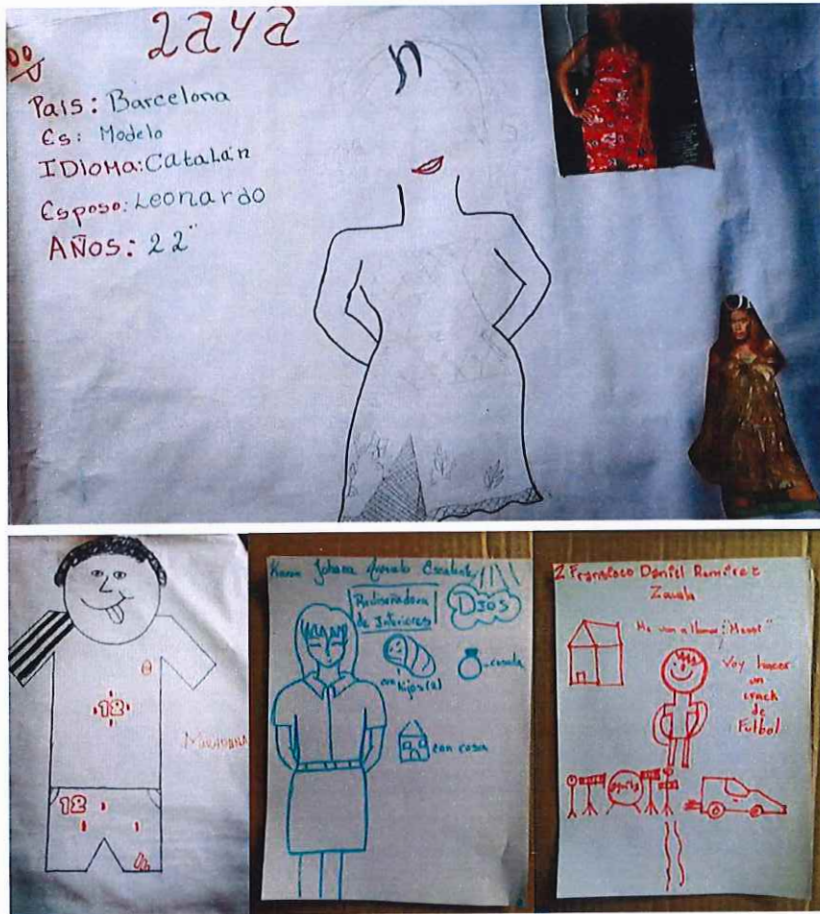 Zaya
País: Barcelona
Es: Modelo
IDioMa: Catalán
Esposo: Leonardo
AÑOS: 22
12
12
Karen Johana
Rediseñadora
de Interiores
DIOS
con
hijos(a)
casada
con casa
Francisco Daniel Ramírez
Zavala
Me van a llamar "Messi"
Voy hacer
un
crack
de
Futbol